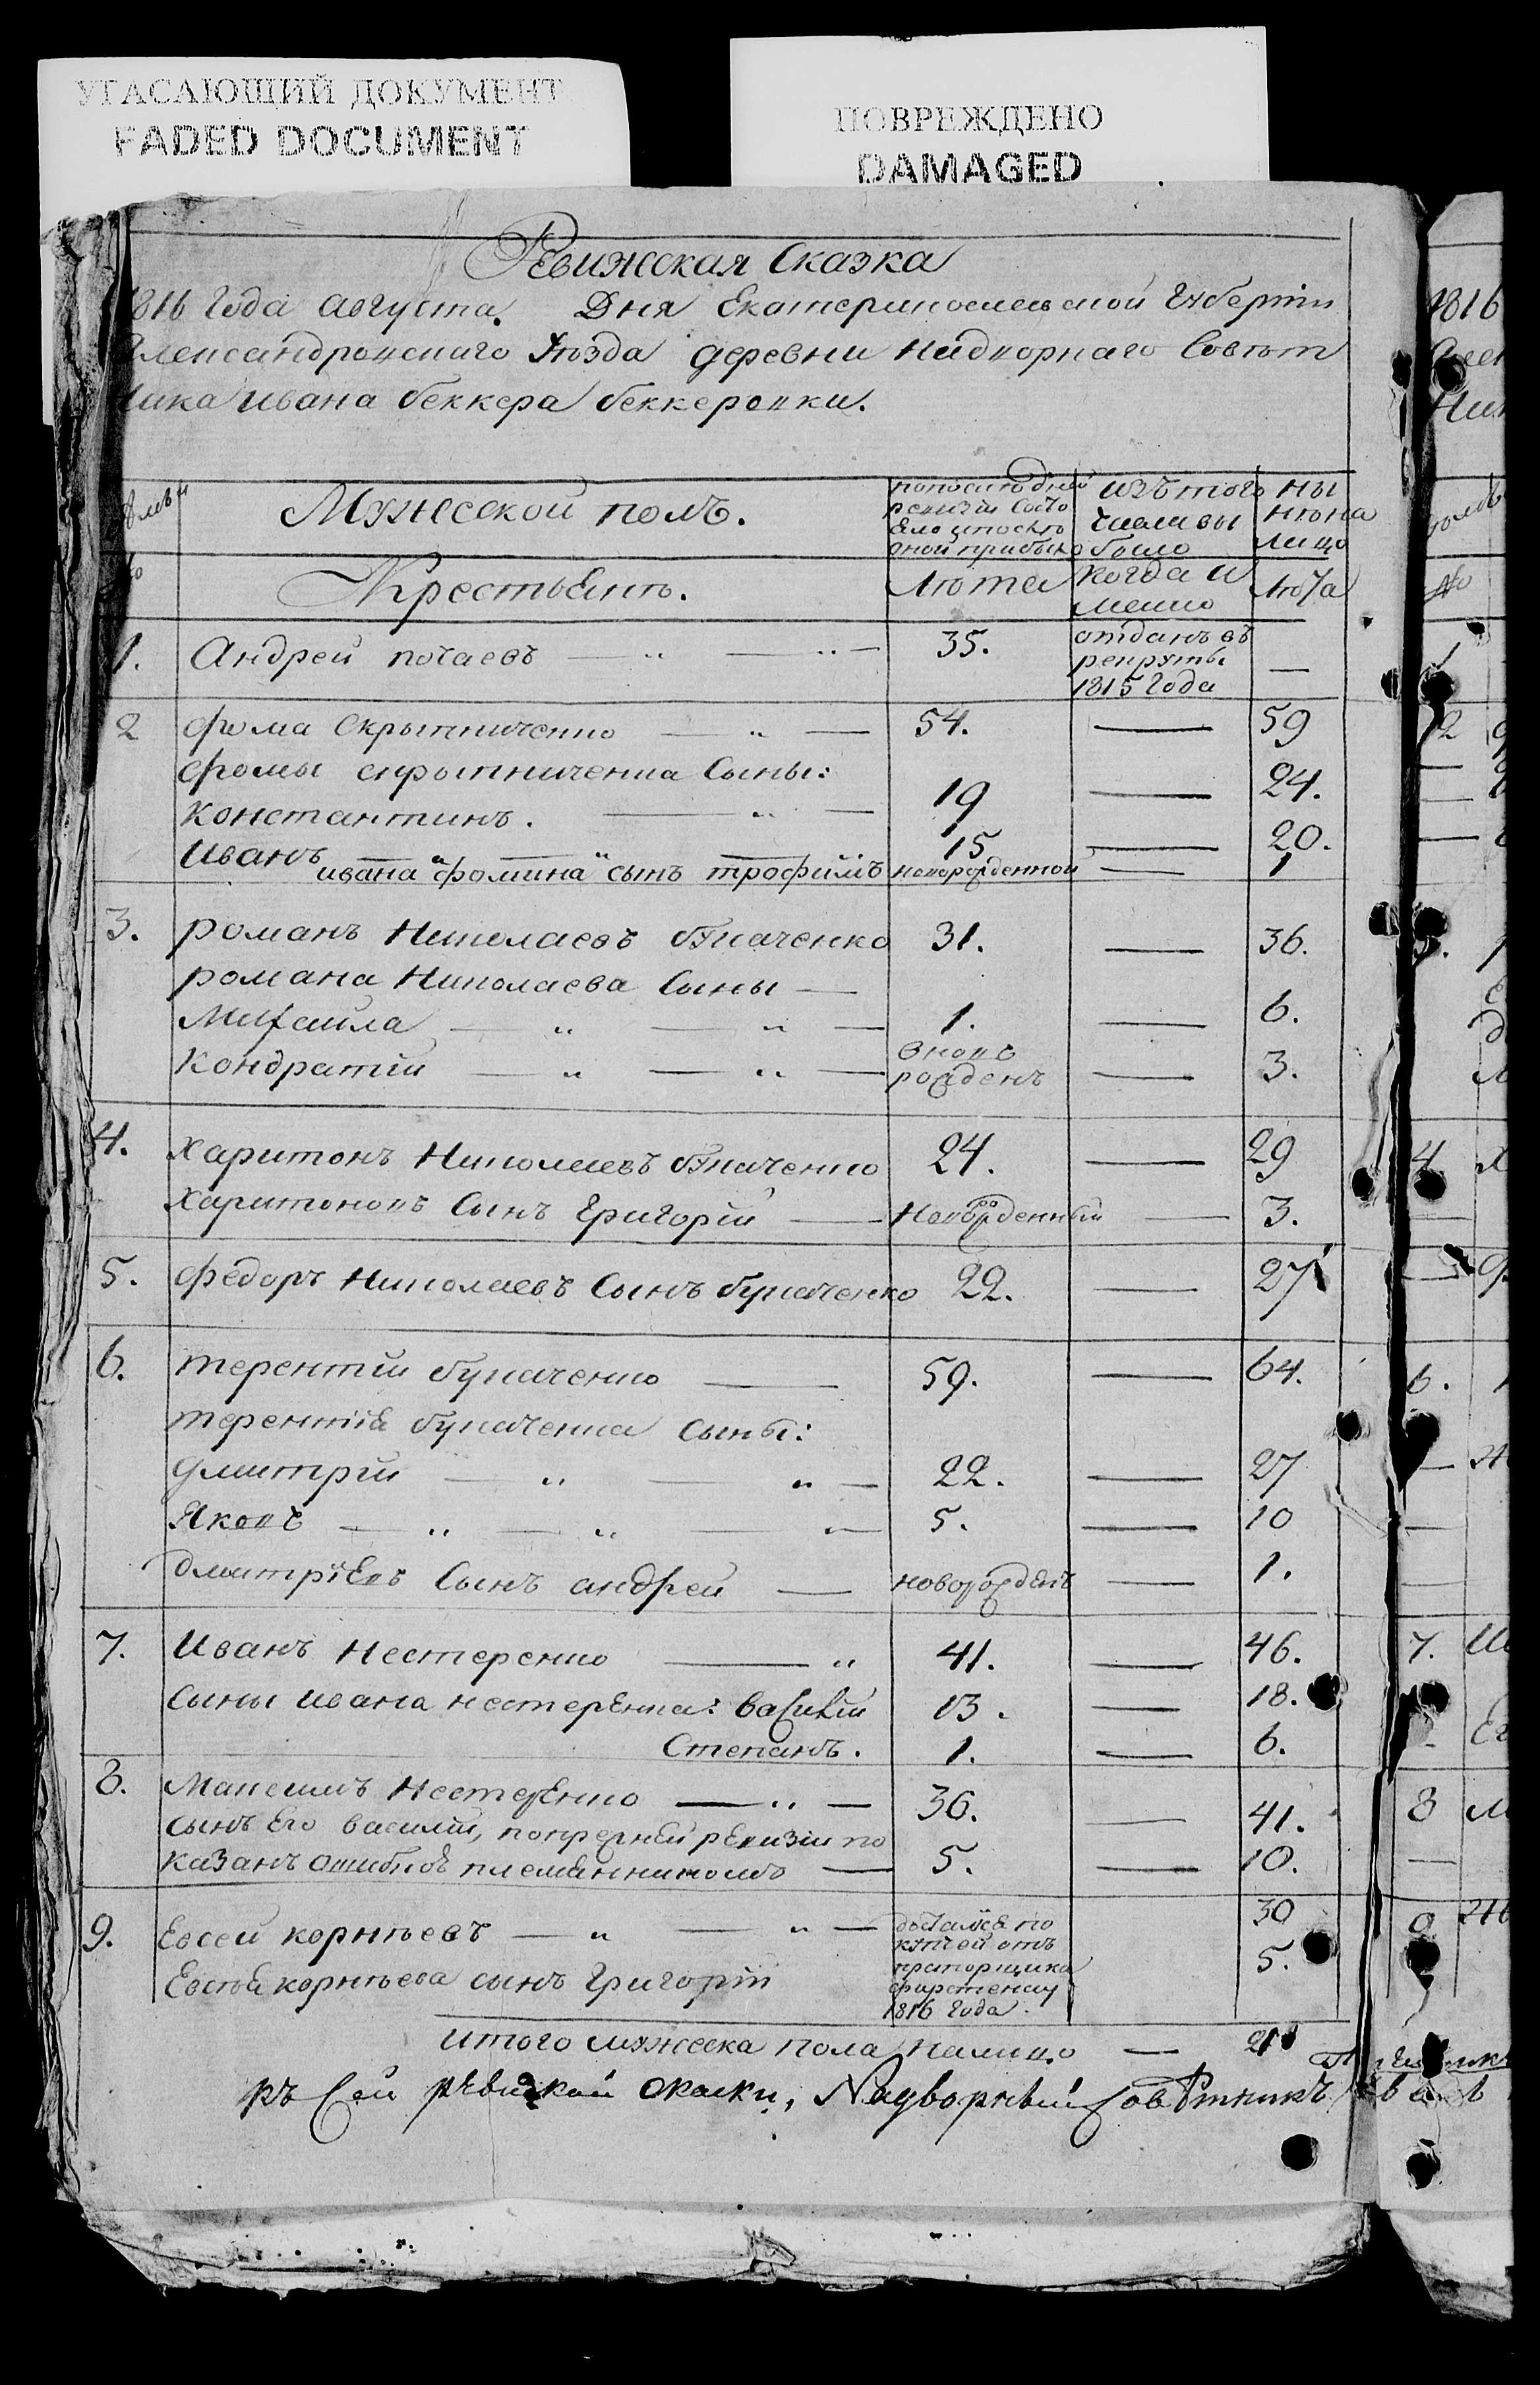 УГАСАЮЩИЙ ДОКУМЕНТ
FADED DOCUMENT
ПОВРЕЖДЕНО
DAMAGED
Ревижская Сказка
1816 года августа. Дня Екатеринославской Губернiи
Александровскаго Уѣзда деревни Надворнаго Совѣт
ника Ивана беккера беккеровки.
Мужеской полъ.
изъ того числа выбыло
нынѣ на лицо
Крестьянѣ.
Лѣта
когда именно
Лѣта
1. Андрей почаевъ 35. отданъ въ рекруты 1815 года —
2 фома Скрыпниченко 54. — 59
фомы скрыпниченка Сыны:
константинъ. 19 — 24.
Иванъ 15 — 20.
ивана фомина сынъ трофимъ новорожденной — 1
3. романъ Николаевъ Ткаченко 31. — 36.
романа Николаева Сыны —
Михайла 1. — 6.
Кондратiй вновь рожденъ — 3.
4. Харитонъ Николаевъ Ткаченко 24. — 29
Харитоновъ Сынъ Григорiй — Новорожденный — 3.
5. федоръ Николаевъ Сынъ буначенко 22. — 27
6. терентiй буначенко — 59. — 64.
терентiя буначенка Сыны:
дмитрiй 22. — 27
Яковъ 5. — 10
дмитрiевъ Сынъ андрей — новорожденъ — 1.
7. Иванъ Нестеренко 41. — 46.
Сыны ивана нестеренка: василiй 13. — 18.
Степанъ. 1. — 6.
8. Максимъ Нестеренко 36. — 41.
сынъ Его василiй, попрежней ревизiи по
казанъ ошибкоъ племянникомъ — 5. — 10.
9. Евсей корнѣевъ достался по купчей отъ прапорщика 1816 года 30
Евсѣя корнѣева сынъ Григорiй 5.
итого мужеска пола налицо —
къ Сей ревизкой скаски, Надворный Совѣтникъ
1816
2
4
6.
7.
8
9